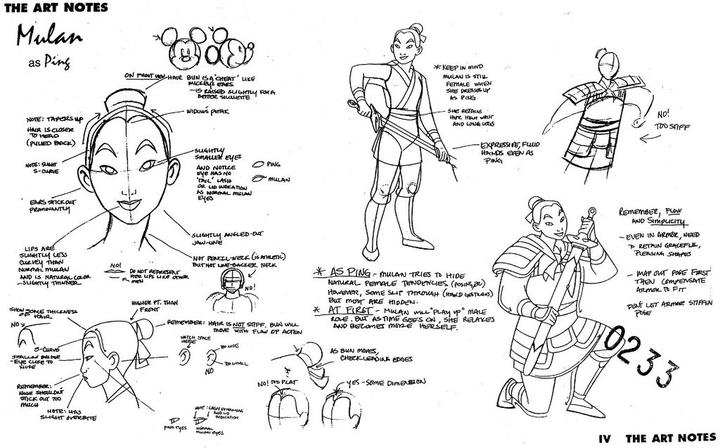 THE ART NOTES
Mulan
as Ping
ON FRONT VIEW HAIR BUN IS A "CHEAT" LIKE
MICKEY'S EARS
- IS RAISED SLIGHTLY FOR A
BETTER SILHOUETTE
WIDOWS PEAK
NOTE: TAPERS UP
HAIR IS CLOSER
TO HEAD
(PULLED BACK)
NOTE: SLIGHT
S-CURVE
EARS STICK OUT
PROMINANTLY
SLIGHTLY
SMALLER EYES
AND NOTICE
EYE HAS NO
"TAIL" LASH
OR LID INDICATION
AS NORMAL MULAN
EYES
PING
MULAN
SLIGHTLY ANGLED-OUT
JAW-LINE
LIPS ARE
SLIGHTLY LESS
CURVEY THAN
NORMAL MULAN
AND IS NATURAL COLOR
- SLIGHTLY THINNER
NO!
DO NOT REPRESENT
HER LIPS LIKE OTHER
MEN
NOT PENCIL-NECK (IS ATHLETIC)
BUT NOT LINE-BACKER NECK
NO!
* KEEP IN MIND
MULAN IS STILL
FEMALE WHEN
SHE DRESSES UP
AS PING
SHE RETAINS
HER HIGH WAIST
AND LONG LEGS
EXPRESSIVE, FLUID
HANDS EVEN AS
PING
NO!
TOO STIFF
REMEMBER, FLOW
AND SIMPLICITY
- EVEN IN ARMOR, NEED
TO RETAIN GRACEFUL,
PLEASING SHAPES
- MAP OUT POSE FIRST
THEN COMPENSATE
ARMOR TO FIT
DON'T LET ARMOR STIFFEN
POSE
* AS PING - MULAN TRIES TO HIDE
NATURAL FEMALE TENDENCIES
HOWEVER, SOME SLIP THROUGH (HAND GESTURES)
BUT MOST ARE HIDDEN.
* AT FIRST - MULAN WILL "PLAY UP" MALE
ROLE. BUT AS TIME GOES ON, SHE RELAXES
AND BECOMES MORE HERSELF.
SHOW SOME THICKNESS
OF HAIR
NO
HIGHER PT. THAN
FRONT
REMEMBER: HAIR IS NOT STIFF, BUN WILL
MOVE WITH FLOW OF ACTION
S-CURVE
SHALLOW BRIDGE
- EYE CLOSE TO
NOSE
REMEMBER:
NOSE SHOULDN'T
STICK OUT TOO
MUCH
NOTE: HAS
SLIGHT OVERBITE
NO
AS BUN MOVES,
CHECK LEADING EDGES
NO! TOO FLAT
YES - SOME DIMENSION
PING EYES
NORMAL
MULAN EYES
0233
IV THE ART NOTES